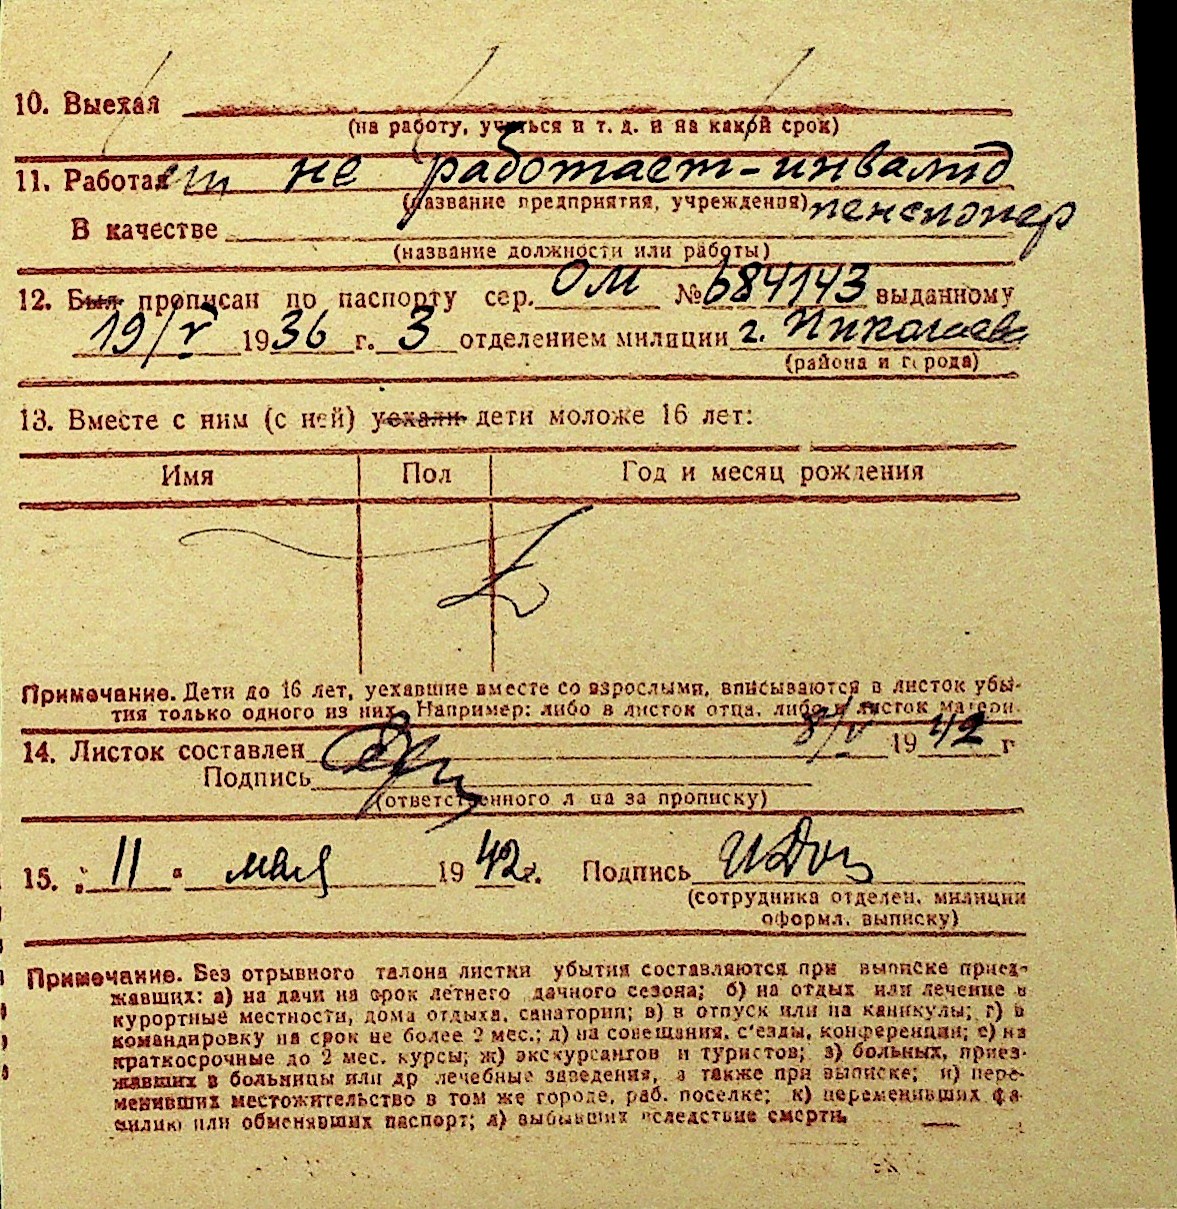 10. Выехал
(на работу, учиться и т. д. и на какой срок)
11. Работает не работает - инвалид
(название предприятия, учреждения) пенсионер
В качестве
(название должности или работы)
12. Был прописан по паспорту сер. ОМ № 684143 выданному
19/V 1936 г. 3 отделением милиции г. Николаева
(района и города)
13. Вместе с ним (с ней) уехали дети моложе 16 лет:
Имя Пол Год и месяц рождения
Примечание. Дети до 16 лет, уехавшие вместе со взрослыми, вписываются в листок убы-
тия только одного из них. Например: либо в листок отца, либо в листок матери.
14. Листок составлен 8/V 1942 г
Подпись
(ответственного лица за прописку)
15. „11" мая 1942 г. Подпись
(сотрудника отделен. милиции
оформл. выписку)
Примечание. Без отрывного талона листки убытия составляются при выписке приез-
жавших: а) на дачи на срок летнего дачного сезона; б) на отдых или лечение в
курортные местности, дома отдыха, санатории; в) в отпуск или на каникулы; г) в
командировку на срок не более 2 мес.; д) на совещания, с'езды, конференции; е) на
краткосрочные до 2 мес. курсы; ж) экскурсантов и туристов; з) больных, приез-
жавших в больницы или др лечебные заведения, а также при выписке; и) пере-
менивших местожительство в том же городе, раб. поселке; к) переменивших фа-
милию или обменявших паспорт; л) выбывших вследствие смерти.